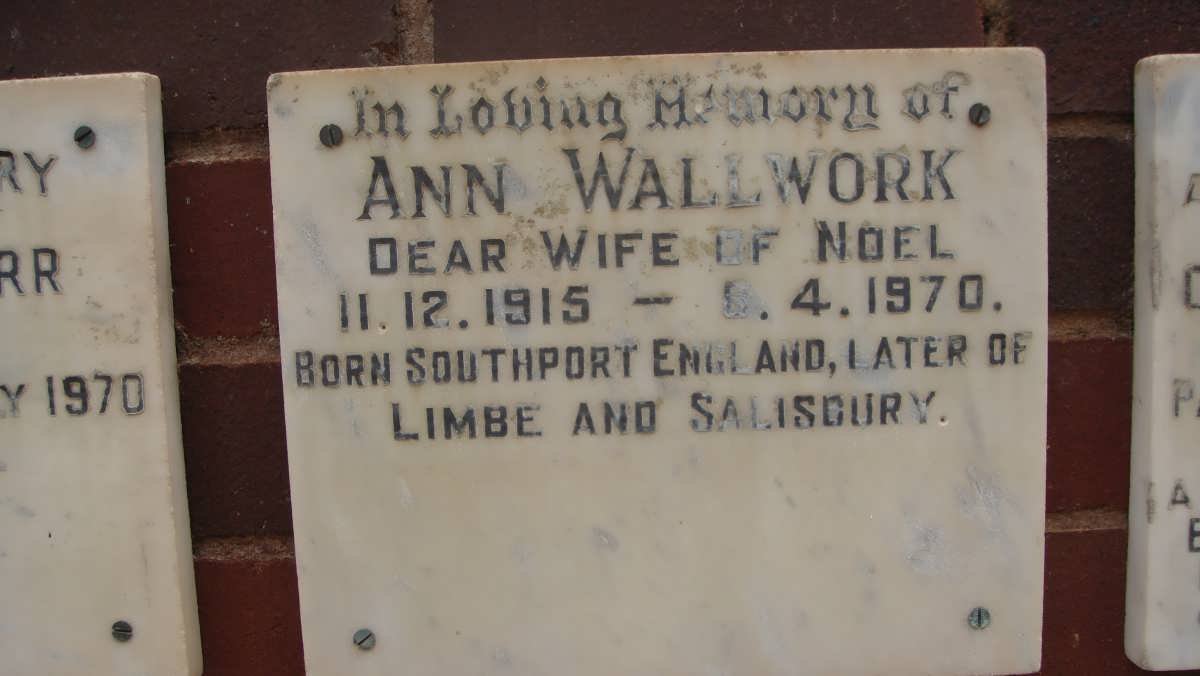 In Loving Memory of
ANN WALLWORK
DEAR WIFE OF NOEL
11.12.1915 — 6.4.1970.
BORN SOUTHPORT ENGLAND, LATER OF
LIMBE AND SALISBURY.
RY
RR
Y 1970